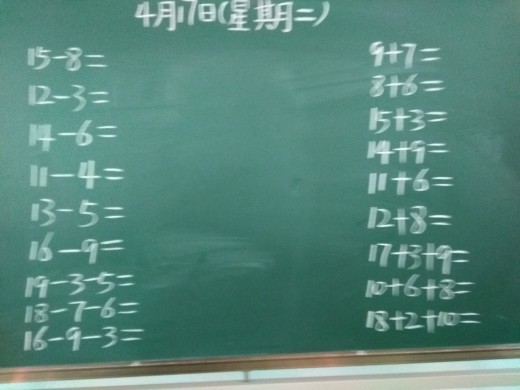 4月17日(星期二)
15-8=
12-3=
14-6=
11-4=
13-5=
16-9=
19-3-5=
18-7-6=
16-9-3=
9+7=
8+6=
15+3=
14+9=
11+6=
12+8=
17+3+9=
10+6+8=
18+2+10=